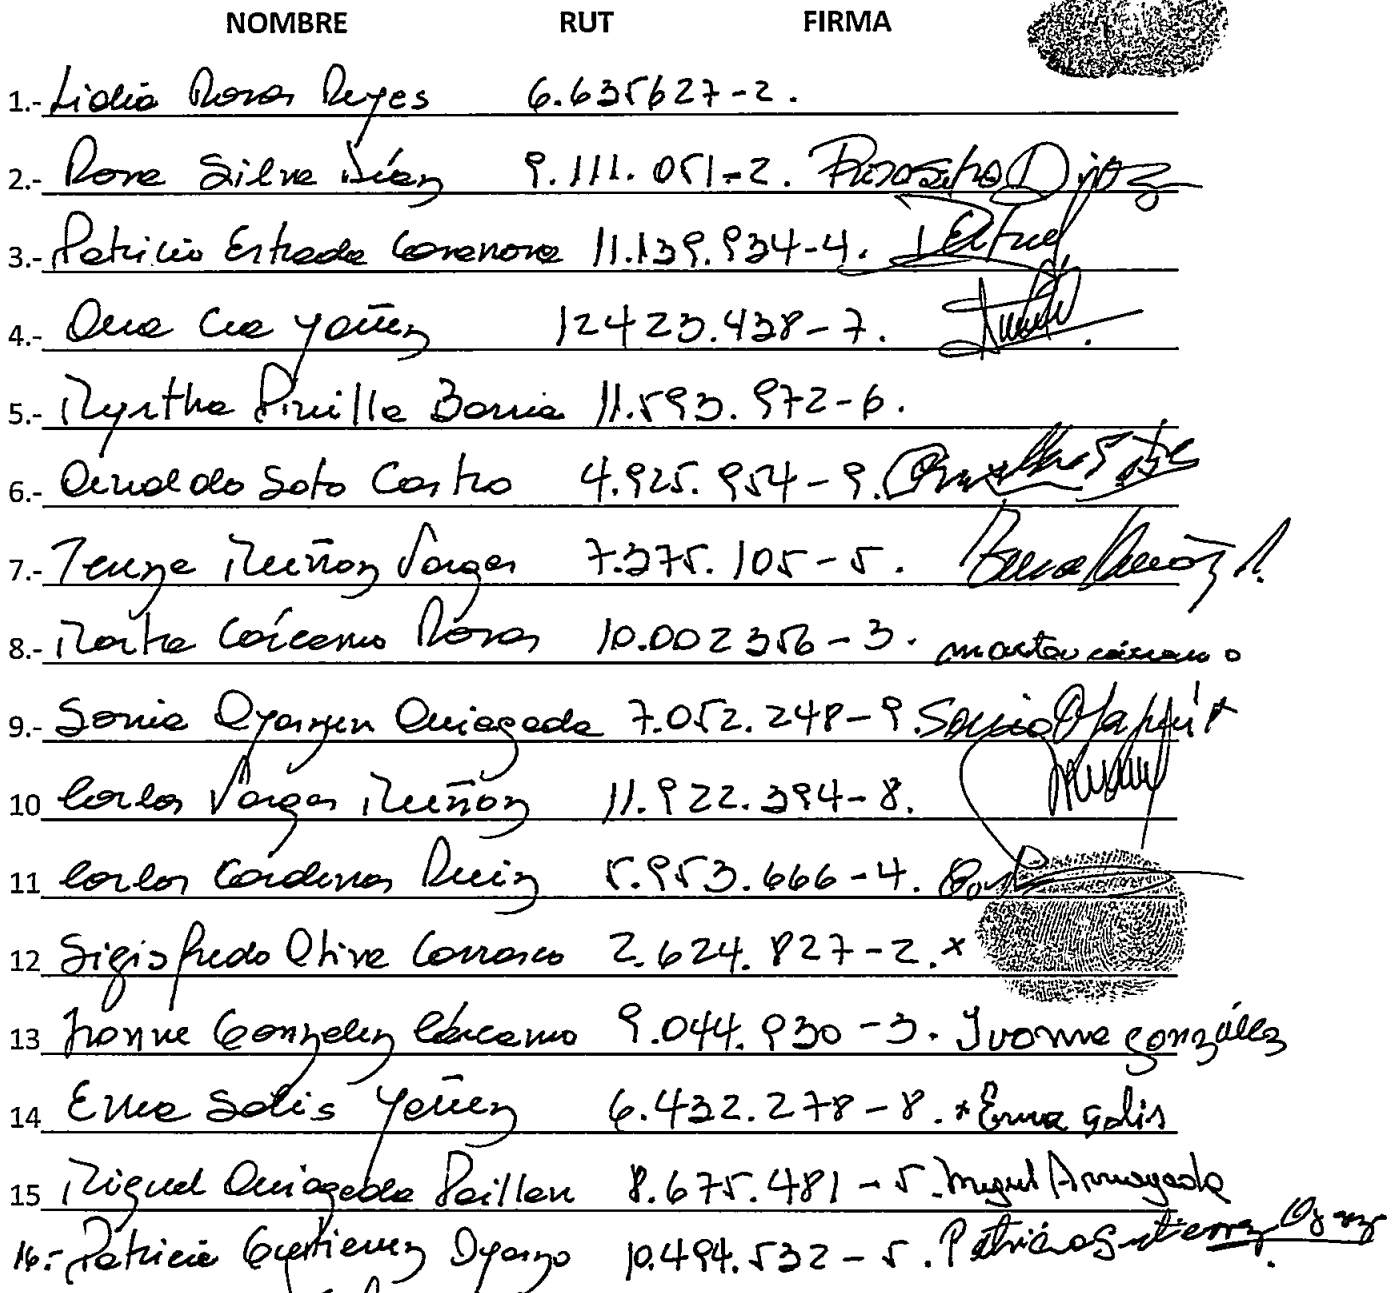 NOMBRE RUT FIRMA
1.- Lidia Rosas Reyes 6.635627-2.
2.- Rosa Silva Díaz 9.111.051-2. Díaz
3.- Patricio Estrada Casanova 11.139.934-4.
4.- Ana Cea Yañez 12423.438-7.
5.- Myrtha Pinilla Barria 11.593.972-6.
6.- Arnoldo Soto Castro 4.925.954-9.
7.- Teresa Muñoz Vargas 7.375.105-5.
8.- Marta Cárcamo Rosas 10.002356-3. marta cárcamo
9.- Sonia Oyarzun Arriagada 7.052.248-9. Sonia
10 Carlos Vargas Muñoz 11.922.394-8.
11 Carlos Cárdenas Ruiz 5.953.666-4.
12 Sigisfredo Oliva Carrasco 2.624.827-2.x
13 Ivonne Gonzalez Cárcamo 9.044.930-3. Ivonne González
14 Erna Solis Yañez 6.432.278-8. x Erna Solis
15 Miguel Arriagada Paillan 8.675.481-5. Miguel Arriagada
16.- Patricia Gutierrez Oyarzo 10.494.532-5. Patricia Gutierrez Oyarzo